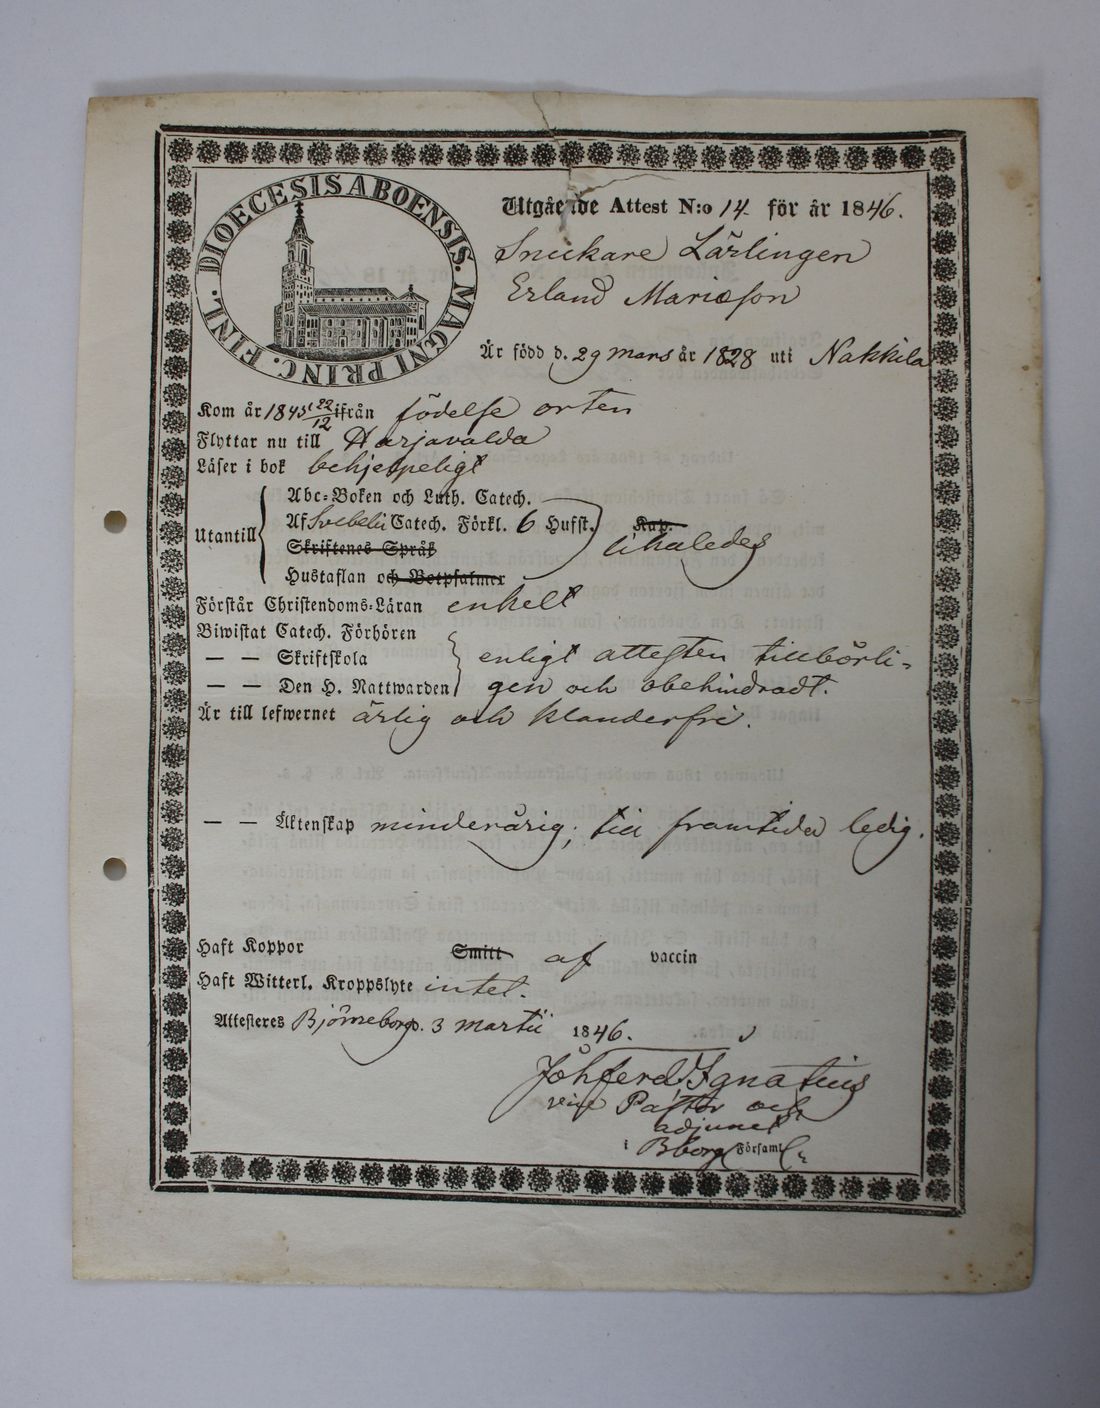 DIOECESIS ABOENSIS. MAGNI PRINC. FINL.
Utgående Attest N:o 14. för år 1846.
Snickare Lärlingen
Erland Mariæson
Är född d. 29 mars år 1828 uti Nakkila
Kom år 1845 22/12 ifrån födelse orten
Flyttar nu till Harjavalda
Läser i bok behjelpeligt
Abc-Boken och Luth. Catech.
Utantill Af Svebelii Catech. Förkl. 6 Hufst. Kap.
likaledes
Skriftenes Språk
Hustaflan och Botpsalmer
Förstår Christendoms-Läran enkelt
Biwistat Catech. Förhören
— — Skriftskola enligt attesten tillbörli-
— — Den H. Nattwarden gen och obehindradt.
Är till lefwernet ärlig och klanderfri.
— — Äktenskap minderårig; till framtida ledig.
Haft Koppor Smitt af vaccin
Haft Witterl. Kroppslyte intet.
Attesteres Björneborg. 3 Martii 1846.
Joh Ferd Ignatius
vice Pastor och
adjunct
i Bborg Församl